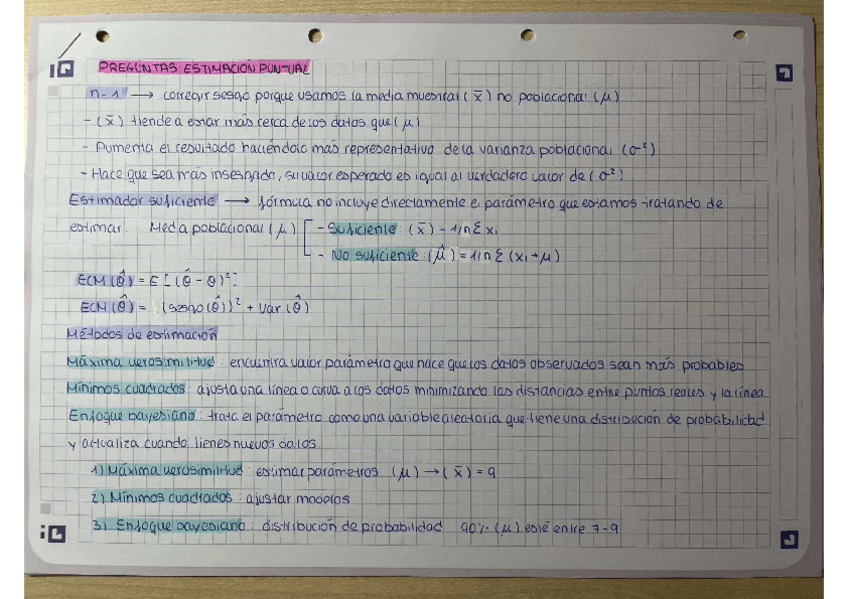 PREGUNTAS ESTIMACIÓN PUNTUAL
n-1 → corregir sesgo porque usamos la media muestral (x̄) no poblacional (μ)
- (x̄) tiende a estar más cerca de los datos que (μ)
- Aumenta el resultado haciéndolo más representativo de la varianza poblacional (σ²)
- Hace que sea más insesgado, su valor esperado es igual al verdadero valor de (σ²)
Estimador suficiente → fórmula no incluye directamente el parámetro que estamos tratando de
estimar. Media poblacional (μ) [ - Suficiente: (x̄) = 1/n Σ xᵢ
- No suficiente: (μ̂) = 1/n Σ (xᵢ + μ)
ECM (θ̂) = E [(θ̂ - θ)²]
ECM (θ̂) = (sesgo (θ̂))² + Var (θ̂)
Métodos de estimación
Máxima verosimilitud: encuentra valor parámetro que hace que los datos observados sean más probables
Mínimos cuadrados: ajusta una línea o curva a los datos minimizando las distancias entre puntos reales y la línea
Enfoque bayesiano: trata el parámetro como una variable aleatoria que tiene una distribución de probabilidad
y actualiza cuando tienes nuevos datos.
1) Máxima verosimilitud: estimar parámetros (μ) → (x̄) = 9
2) Mínimos cuadrados: ajustar modelos
3) Enfoque bayesiano: distribución de probabilidad 90% (μ) esté entre 7-9